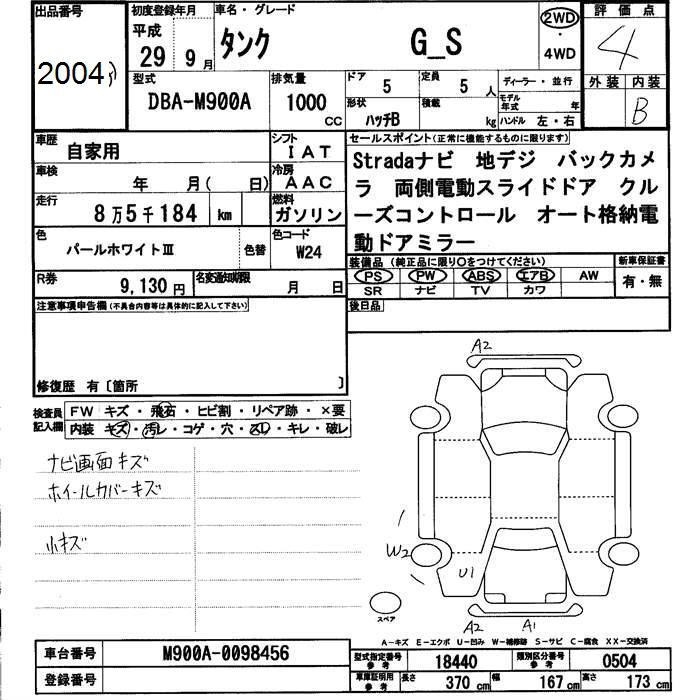 出品番号
2004
初度登録年月
平成
29 9月
車名・グレード
タンク G_S
2WD
・
4WD
評価点
4
外装 内装
B
型式
DBA-M900A
排気量
1000
CC
ドア
5
定員
5 人
形状
ハッチB
積載
kg
ディーラー・並行
モデル年式 年
ハンドル 左・右
車歴
自家用
シフト
IAT
車検
年 月( 日)
冷房
AAC
走行
8万5千184 km
燃料
ガソリン
色
パールホワイトⅢ
色替
色コード
W24
R券
9,130円
名変通知期限
月 日
セールスポイント(正常に機能するものに限ります)
Stradaナビ 地デジ バックカメ
ラ 両側電動スライドドア クル
ーズコントロール オート格納電
動ドアミラー
装備品(純正品に限り○をつけてください)
新車保証書
PS PW ABS エアB AW
SR ナビ TV カワ
有・無
後日品
注意事項申告欄(不具合内容等は具体的に記入して下さい)
修復歴 有〔箇所 〕
検査員
記入欄
FW キズ・飛石・ヒビ割・リペア跡・×要
内装 キズ・汚レ・コゲ・穴・スレ・キレ・破レ
ナビ画面キズ
ホイールカバーキズ
小キズ
A2
W2
U1
A2
A1
スペア
A-キズ E-エクボ U-凹み W-補修跡 S-サビ C-腐食 XX-交換済
車台番号
M900A-0098456
登録番号
型式指定番号
参考
18440
類別区分番号
参考
0504
車庫証明用
参考
長さ 370cm 幅 167cm 高さ 173cm